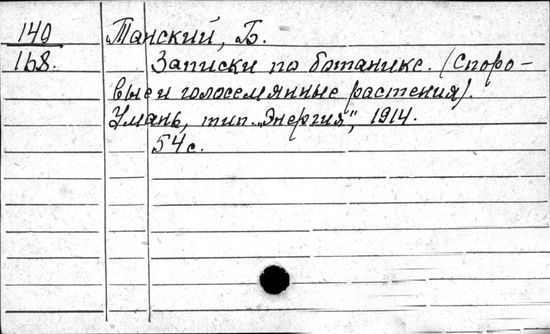 140 Танский, Б.
168. Записки по ботанике. (Споро-
вые и голосемянные растения).
Умань, тип. „Энергия", 1914.
54 с.